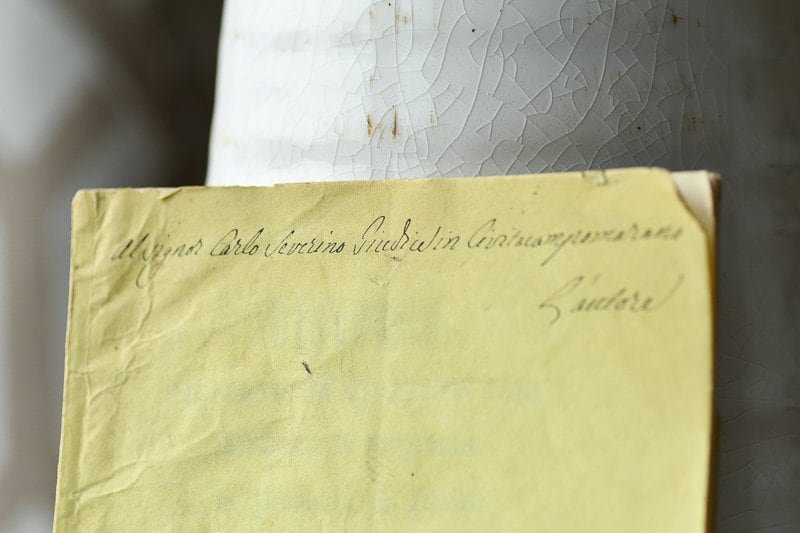 Al Signor Carlo Severino Giudice in Civitacampomarano
L'autore